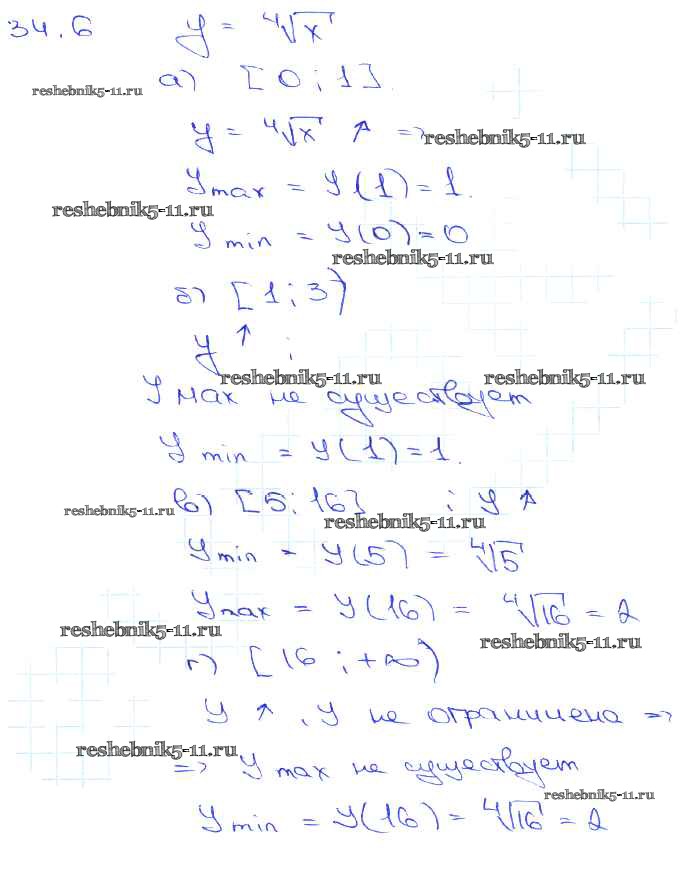 34.6 y = ⁴√x
а) [0 ; 1].
reshebnik5-11.ru
y = ⁴√x ↑ =>
reshebnik5-11.ru
y max = y(1) = 1.
reshebnik5-11.ru
y min = y(0) = 0
reshebnik5-11.ru
б) [1 ; 3)
y ↑ ;
reshebnik5-11.ru reshebnik5-11.ru
y max не существует
y min = y(1) = 1.
reshebnik5-11.ru
в) [5 ; 16] ; y ↑
reshebnik5-11.ru
y min = y(5) = ⁴√5
y max = y(16) = ⁴√16 = 2
reshebnik5-11.ru
reshebnik5-11.ru
г) [16 ; +∞)
y ↑ , y не ограничена =>
reshebnik5-11.ru
=> y max не существует
reshebnik5-11.ru
y min = y(16) = ⁴√16 = 2